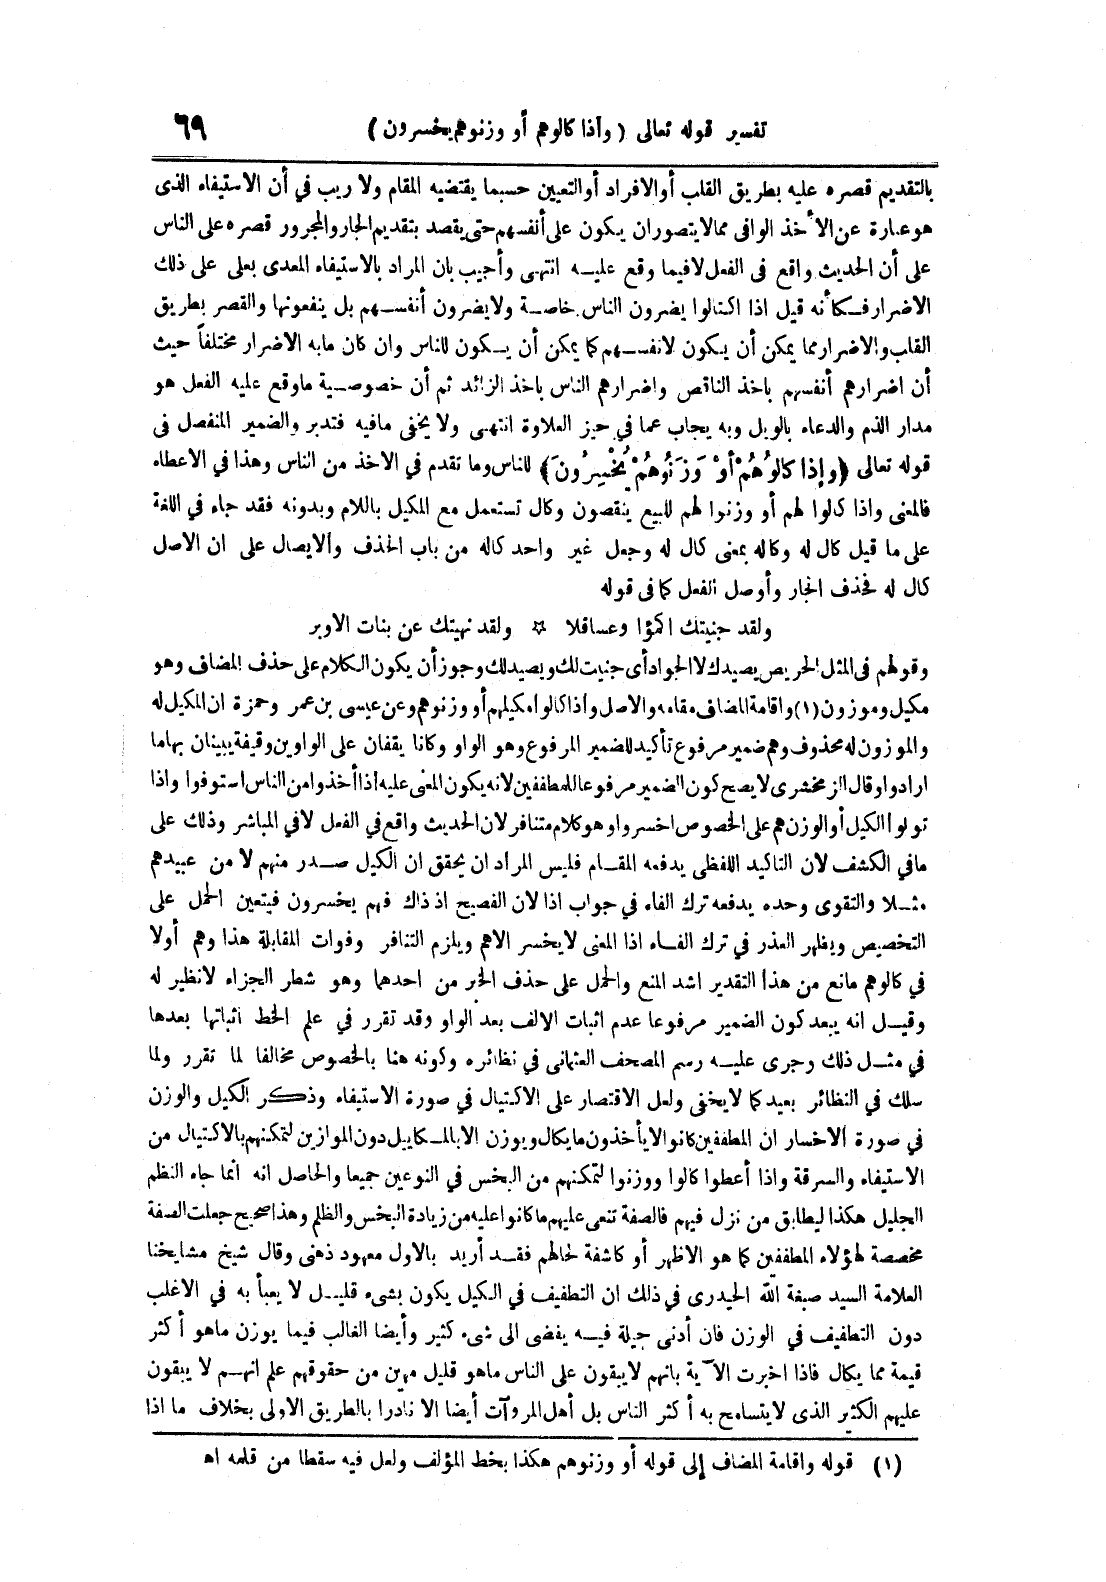 تفسير قوله تعالى ( وإذا كالوهم أو وزنوهم يخسرون )
٦٩
بالتقديم قصره عليه بطريق القلب أو الافراد أو التعيين حسبما يقتضيه المقام ولا ريب في أن الاستيفاء الذى
هو عبارة عن الأخذ الوافى مما لا يتصور ان يكون على أنفسهم حتى يقصد بتقديم الجار والمجرور قصره على الناس
على أن الحديث واقع فى الفعل لا فيما وقع عليه انتهى وأجيب بان المراد بالاستيفاء المعدى بعلى على ذلك
الاضرار فكأنه قيل اذا اكتالوا يضرون الناس خاصة ولا يضرون أنفسهم بل ينفعونها والقصر بطريق
القلب والاضرار مما يمكن أن يكون لانفسهم كما يمكن أن يكون للناس وان كان مابه الاضرار مختلفاً حيث
أن اضرارهم أنفسهم باخذ الناقص واضرارهم الناس باخذ الزائد ثم أن خصوصية ماوقع عليه الفعل هو
مدار الذم والدعاء بالويل وبه يجاب عما في حيز العلاوة انتهى ولا يخفى مافيه فتدبر والضمير المنفصل فى
قوله تعالى ﴿وإذا كالُوهُمْ أوْ وَزَنُوهُمْ يُخْسِرُونَ﴾ للناس وما تقدم في الاخذ من الناس وهذا في الاعطاء
فالمعنى واذا كالوا لهم أو وزنوا لهم للبيع ينقصون وكال تستعمل مع المكيل باللام وبدونه فقد جاء في اللغة
على ما قيل كال له وكاله بمعنى كال له وجعل غير واحد كاله من باب الحذف والايصال على ان الاصل
كال له فحذف الجار وأوصل الفعل كما فى قوله
ولقد جنيتك اكمؤا وعساقلا ☆ ولقد نهيتك عن بنات الاوبر
وقولهم فى المثل الحريص يصيدك لا الجواد أى جنيت لك ويصيد لك وجوز أن يكون الكلام على حذف المضاف وهو
مكيل وموزون (١) واقامة المضاف مقامه والاصل واذا كالوا مكيلهم أو وزنوهم وعن عيسى بن عمر وحمزة ان المكيل له
والموزون له محذوف وهم ضمير مرفوع تأكيد للضمير المرفوع وهو الواو وكانا يقفان على الواوين وقيفة يبينان بها ما
ارادوا وقال الزمخشرى لا يصح كون الضمير مرفوعا للمطففين لانه يكون المعنى عليه اذا أخذوا من الناس استوفوا واذا
تولوا الكيل أو الوزن هم على الخصوص اخسروا وهو كلام متنافر لان الحديث واقع في الفعل لافي المباشر وذلك على
مافي الكشف لان التاكيد اللفظى يدفعه المقام فليس المراد ان يحقق ان الكيل صدر منهم لا من عبيدهم
مثلا والتقوى وحده يدفعه ترك الفاء في جواب اذا لان الفصيح اذ ذاك فهم يخسرون فيتعين الحمل على
التخصيص ويظهر العذر في ترك الفاء اذا المعنى لا يخسر الاهم ويلزم التنافر وفوات المقابلة هذا وهم أولا
في كالوهم مانع من هذا التقدير اشد المنع والحمل على حذف الخبر من احدهما وهو شطر الجزاء لانظير له
وقيل انه يبعد كون الضمير مرفوعا عدم اثبات الالف بعد الواو وقد تقرر في علم الخط اثباتها بعدها
في مثل ذلك وجرى عليه رسم المصحف العثمانى في نظائره وكونه هنا بالخصوص مخالفا لما تقرر ولما
سلك في النظائر بعيد كما لا يخفى ولعل الاقتصار على الاكتيال في صورة الاستيفاء وذكر الكيل والوزن
في صورة الاخسار ان المطففين كانوا لا يأخذون ما يكال ويوزن الا بالمكاييل دون الموازين لتمكنهم بالاكتيال من
الاستيفاء والسرقة واذا أعطوا كالوا ووزنوا لتمكنهم من البخس في النوعين جميعا والحاصل انه انما جاء النظم
الجليل هكذا ليطابق من نزل فيهم فالصفة تنعى عليهم ما كانوا عليه من زيادة البخس والظلم وهذا صحيح جعلت الصفة
مخصصة لهؤلاء المطففين كما هو الاظهر أو كاشفة لحالهم فقد أريد بالاول معهود ذهنى وقال شيخ مشايخنا
العلامة السيد صبغة الله الحيدرى في ذلك ان التطفيف في الكيل يكون بشىء قليل لا يعبأ به في الاغلب
دون التطفيف في الوزن فان أدنى حيلة فيه يفضى الى شىء كثير وأيضا الغالب فيما يوزن ماهو أكثر
قيمة مما يكال فاذا اخبرت الآية بانهم لا يبقون على الناس ماهو قليل مهين من حقوقهم علم انهم لا يبقون
عليهم الكثير الذى لا يتسامح به أكثر الناس بل أهل المروآت أيضا الا نادرا بالطريق الاولى بخلاف ما اذا
(١) قوله واقامة المضاف إلى قوله أو وزنوهم هكذا بخط المؤلف ولعل فيه سقطا من قلمه اه